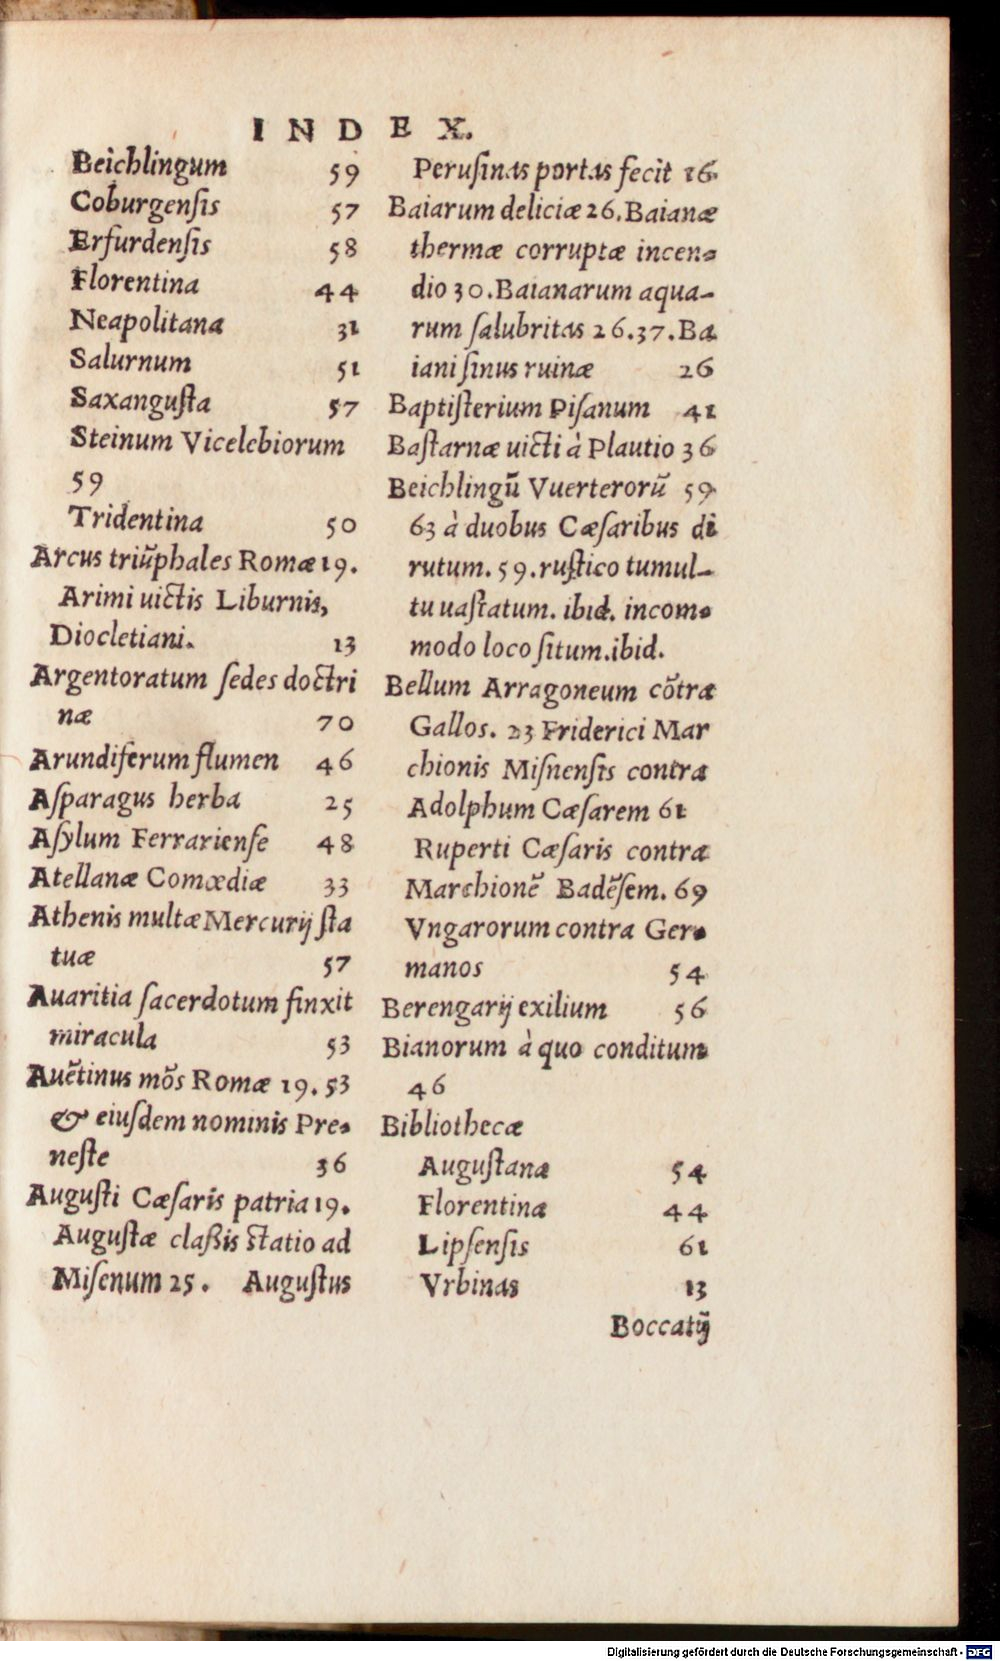 INDEX.
Beichlingum 59
Coburgenſis 57
Erfurdenſis 58
Florentina 44
Neapolitana 31
Salurnum 51
Saxanguſta 57
Steinum Vicelebiorum
59
Tridentina 50
Arcus triũphales Romæ 19.
Arimi uictis Liburnis,
Diocletiani. 13
Argentoratum ſedes doctri
næ 70
Arundiferum flumen 46
Aſparagus herba 25
Aſylum Ferrarienſe 48
Atellanæ Comœdiæ 33
Athenis multæ Mercurij ſta
tuæ 57
Auaritia ſacerdotum finxit
miracula 53
Auẽtinus mõs Romæ 19. 53
& eiuſdem nominis Pre-
neſte 36
Auguſti Cæſaris patria 19.
Auguſtæ claßis ſtatio ad
Miſenum 25. Auguſtus
Peruſinas portas fecit 16
Baiarum deliciæ 26. Baianæ
thermæ corruptæ incen-
dio 30. Baianarum aqua-
rum ſalubritas 26. 37. Ba
iani ſinus ruinæ 26
Baptiſterium Piſanum 41
Baſtarnæ uicti à Plautio 36
Beichlingũ Vuerterorũ 59
63 à duobus Cæſaribus di
rutum. 59. ruſtico tumul-
tu uaſtatum. ibid. incom-
modo loco ſitum. ibid.
Bellum Arragoneum cõtra
Gallos. 23 Friderici Mar
chionis Miſnenſis contra
Adolphum Cæſarem 61
Ruperti Cæſaris contra
Marchionẽ Badẽſem. 69
Vngarorum contra Ger-
manos 54
Berengarij exilium 56
Bianorum à quo conditum
46
Bibliothecæ
Auguſtanæ 54
Florentinæ 44
Lipſenſis 61
Vrbinas 13
Boccatij
Digitalisierung gefördert durch die Deutsche Forschungsgemeinschaft - DFG